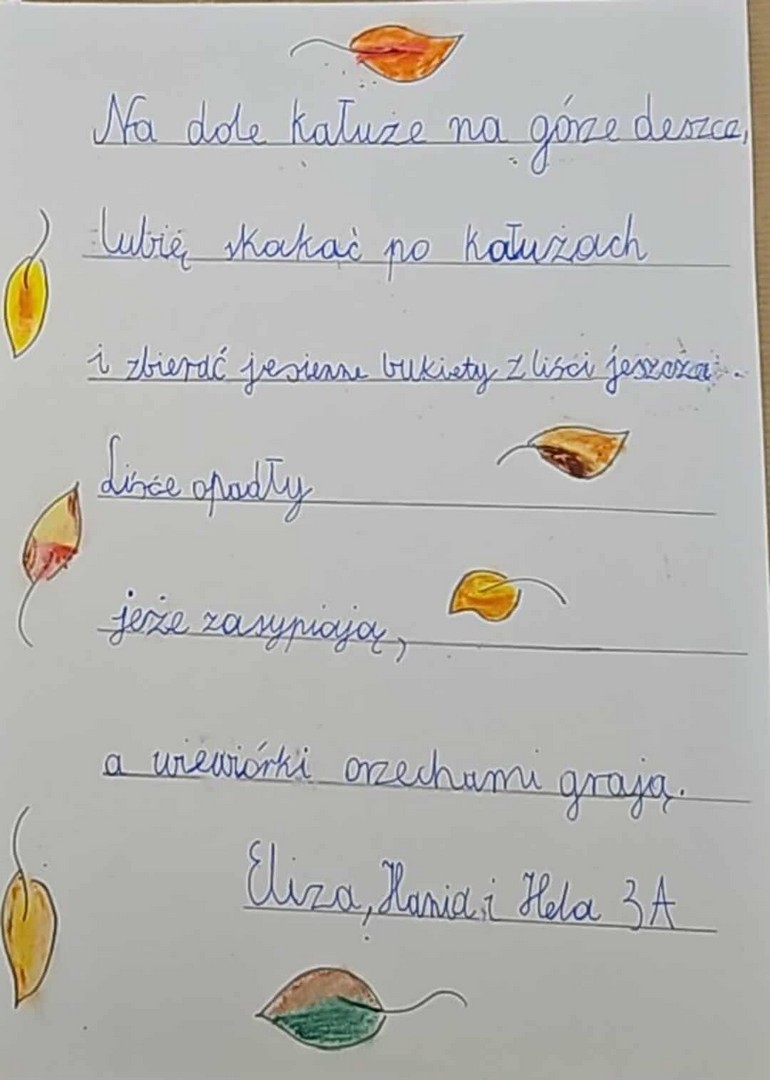 Na dole kałuże na górze deszcze,
lubię skakać po kałużach
i zbierać jesienne bukiety z liści jeszcze.
Liśce opadły
jeże zasypiają,
a wiewiórki orzechami grają.
Eliza, Hania i Hela 3A